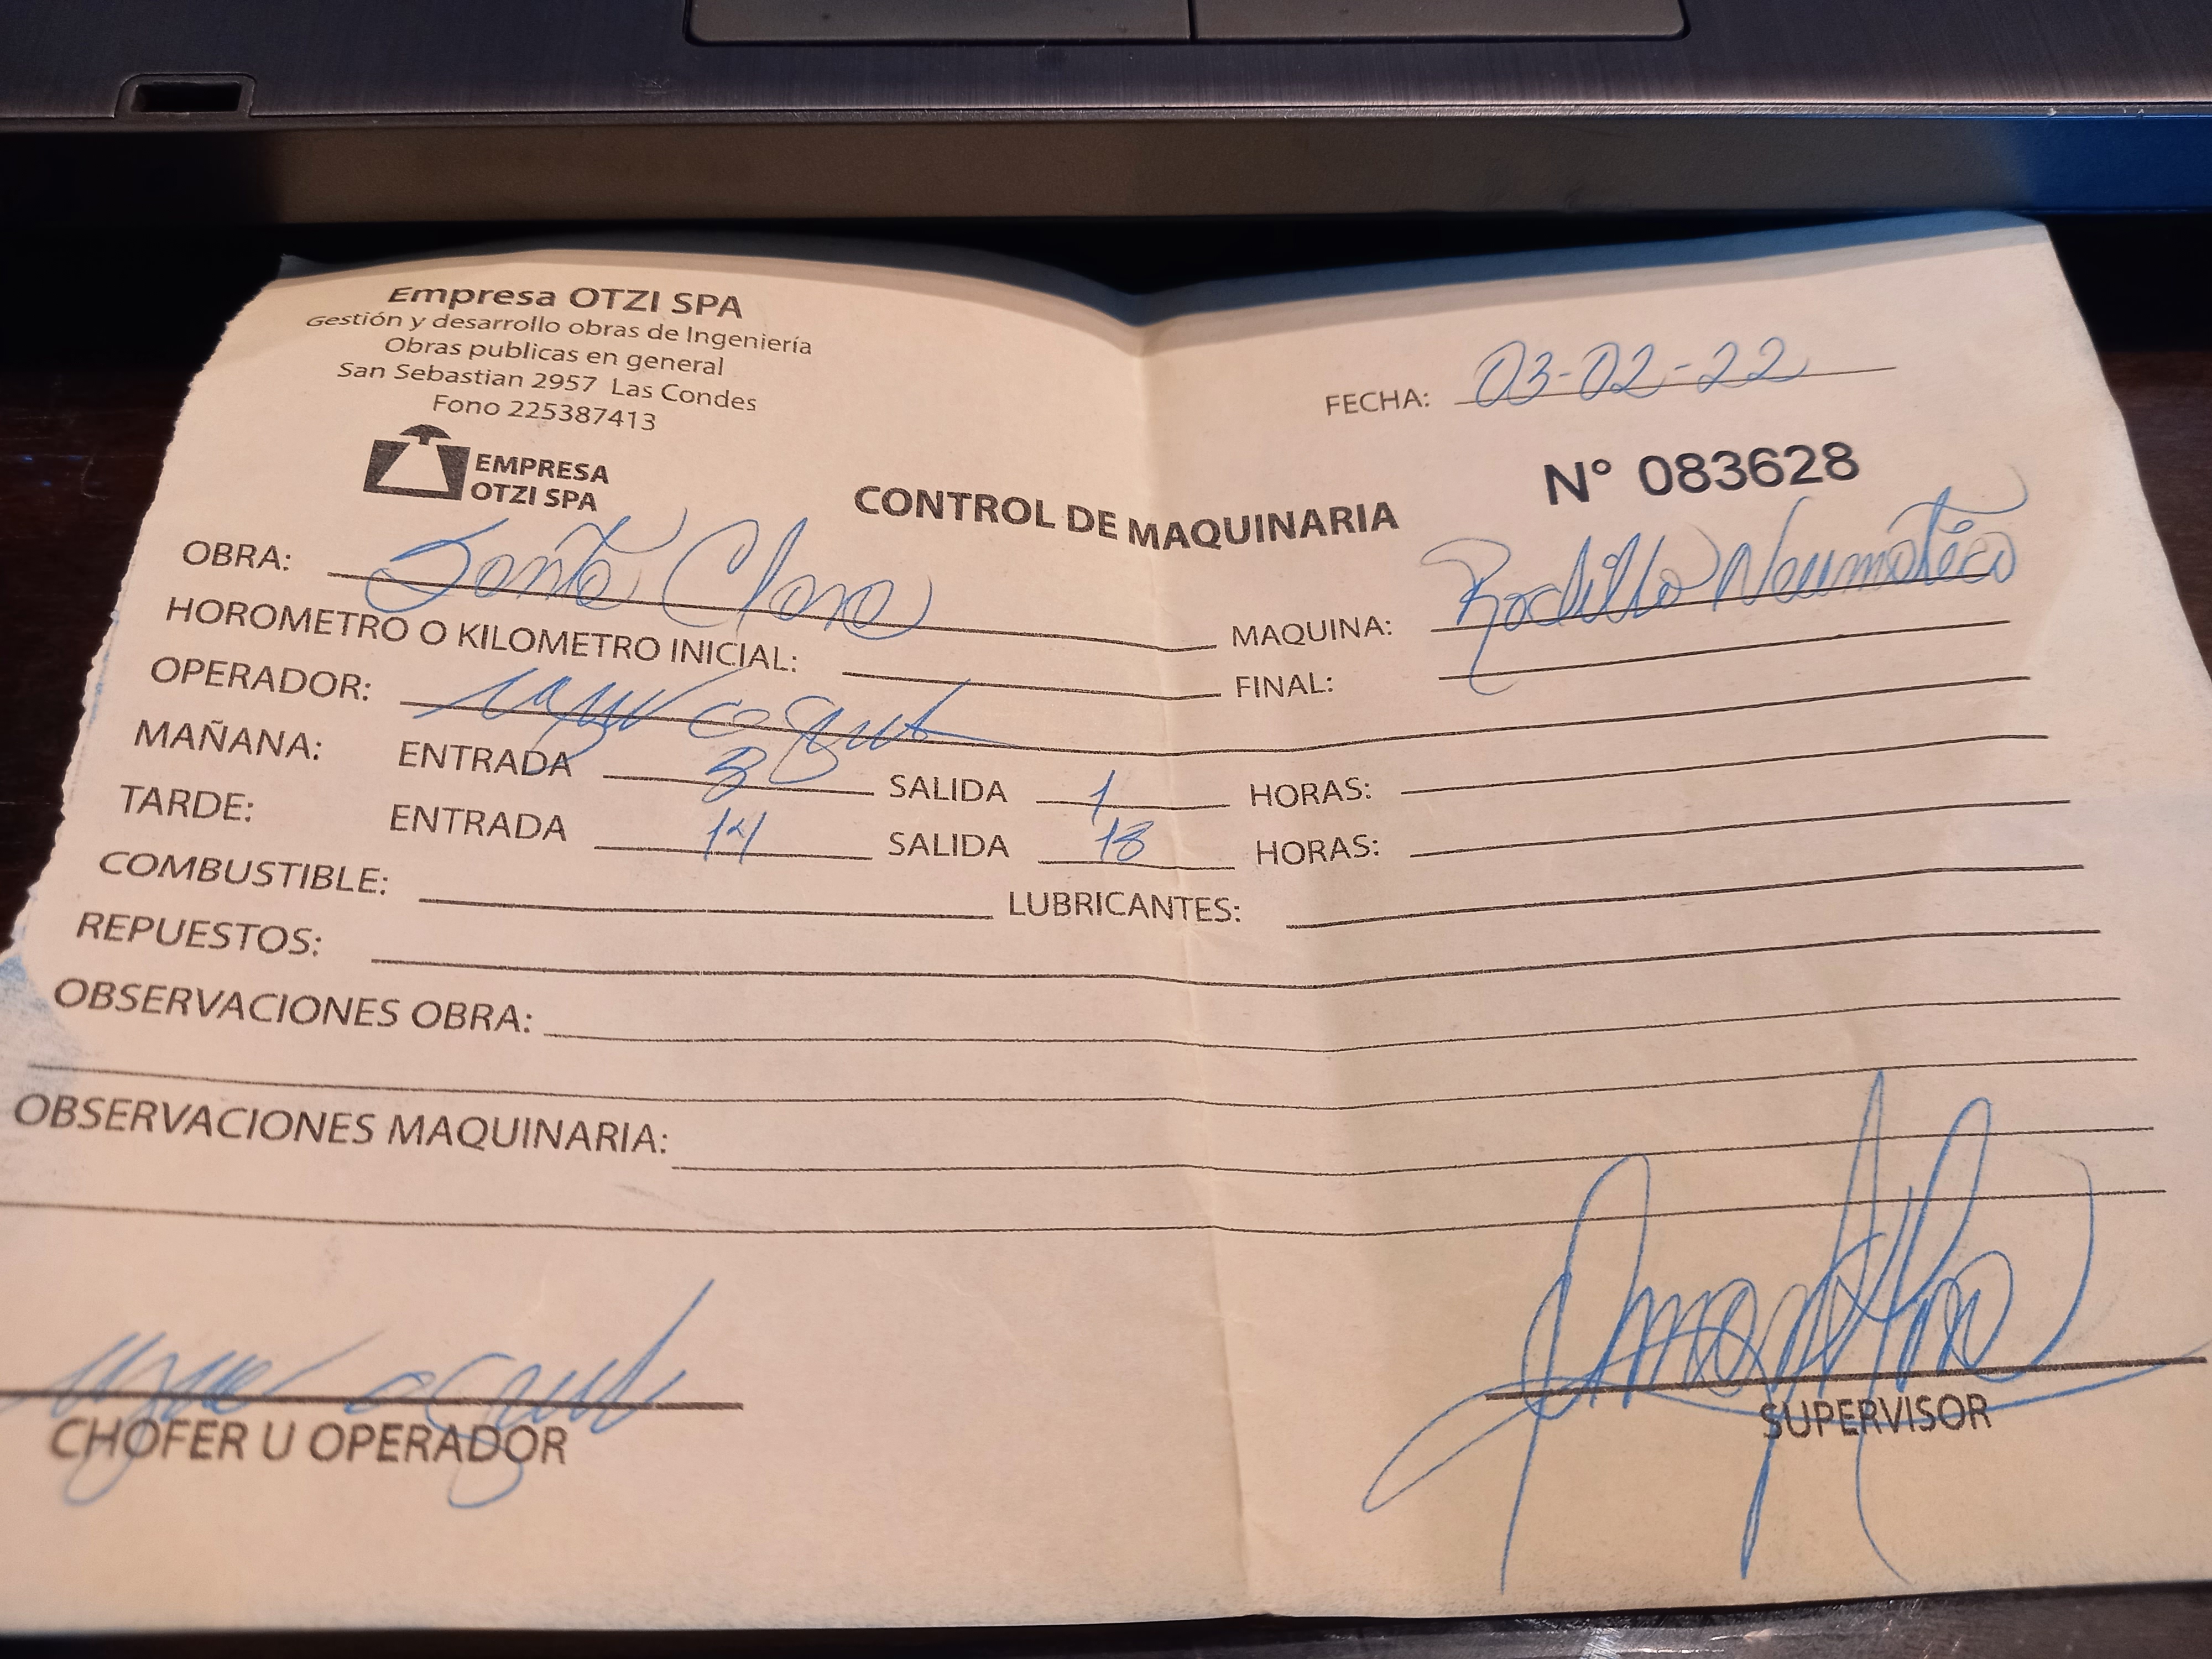 Empresa OTZI SPA
Gestión y desarrollo obras de Ingeniería
Obras publicas en general
San Sebastian 2957 Las Condes
Fono 225387413
EMPRESA
OTZI SPA
FECHA: 03-02-22
N° 083628
CONTROL DE MAQUINARIA
OBRA: Santa Clara MAQUINA: Rodillo Neumatico
HOROMETRO O KILOMETRO INICIAL: FINAL:
OPERADOR:
MAÑANA: ENTRADA 8 SALIDA 1 HORAS:
TARDE: ENTRADA 14 SALIDA 18 HORAS:
COMBUSTIBLE: LUBRICANTES:
REPUESTOS:
OBSERVACIONES OBRA:
OBSERVACIONES MAQUINARIA:
CHOFER U OPERADOR SUPERVISOR